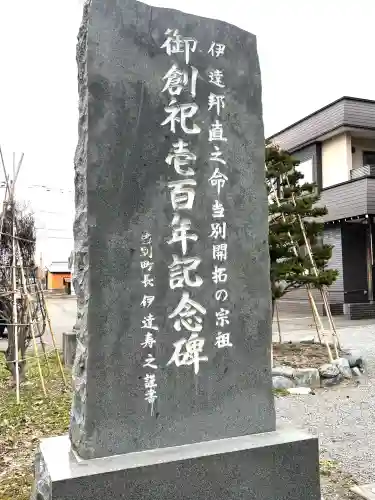 伊達邦直之命当別開拓の宗祖
御創祀壱百年記念碑
当別町長 伊達寿之 謹書